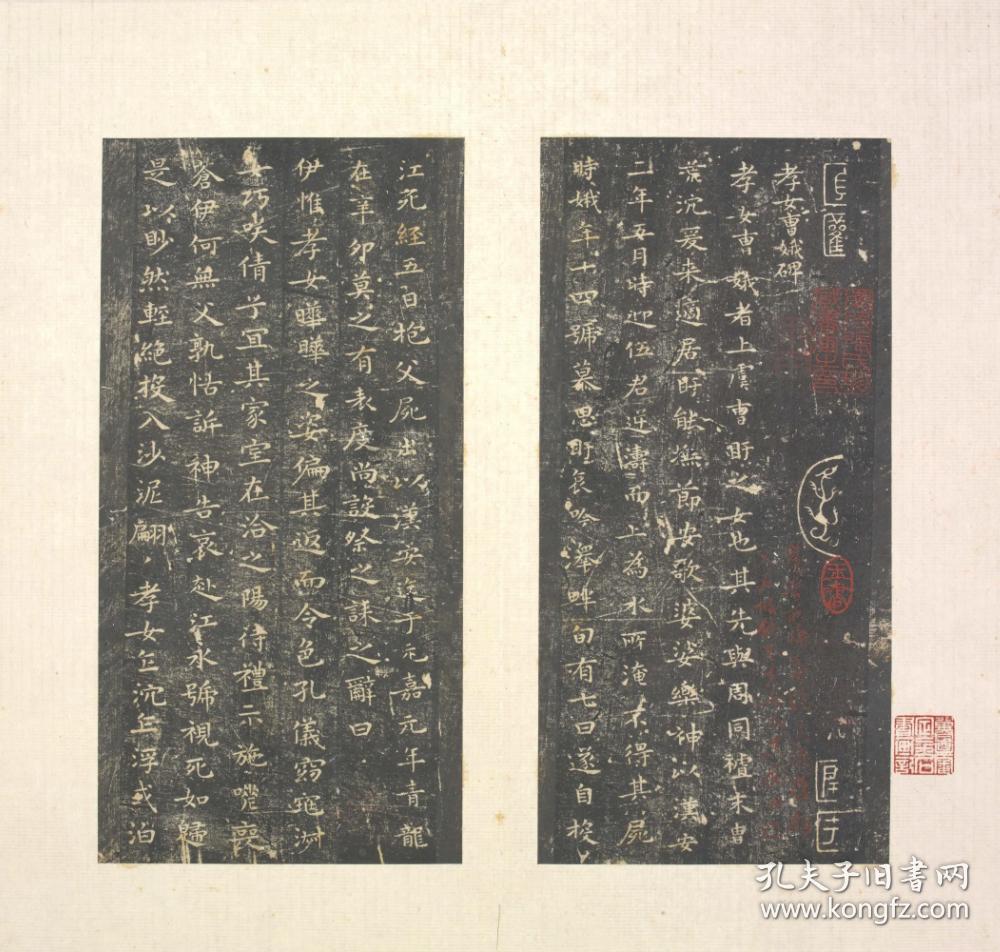 孝女曹娥碑
孝女曹娥者上虞曹盱之女也其先與周同禮末曹
荒沉爰来適居盱能撫節安歌婆娑樂神以漢安
二年五月時迎伍君逆濤而上為水所淹不得其屍
時娥年十四號慕思盱哀吟澤畔旬有七日遂自投
江死經五日抱父屍出以漢安迄于元嘉元年青龍
在辛卯莫之有表度尚設祭之誄之辭曰
伊惟孝女曄曄之姿偏其返而令色孔儀窈窕淑
女巧笑倩兮宜其家室在洽之陽待禮未施嗟喪
蒼伊何無父孰怙訴神告哀赴江永號視死如歸
是以眇然輕絕投入沙泥翩〻孝女乍沉乍浮或泊
孔夫子旧书网
www.kongfz.com